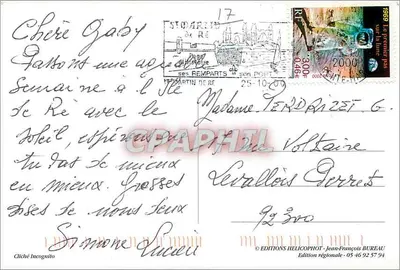 Chère Gaby
Passons une agréa
Semaine a l Ile
de Ré avec le
Soleil, espérons
tu vas de mieux
en mieux. Grosses
bises de nous deux
Simone Lucien
17
ST MARTIN
DE RE
ses REMPARTS son PORT
ST MARTIN DE RE
25-10
2000
1969
Le premier pas
sur la lune
RF
3,00
0,46€
Madame TERDRAZET G.
17 rue Voltaire
Levallois Perret
92300
CPAPHIL
Cliché Incognito
© EDITIONS HELICOPHOT - Jean-François BUREAU
Edition régionale - 05 46 92 57 94